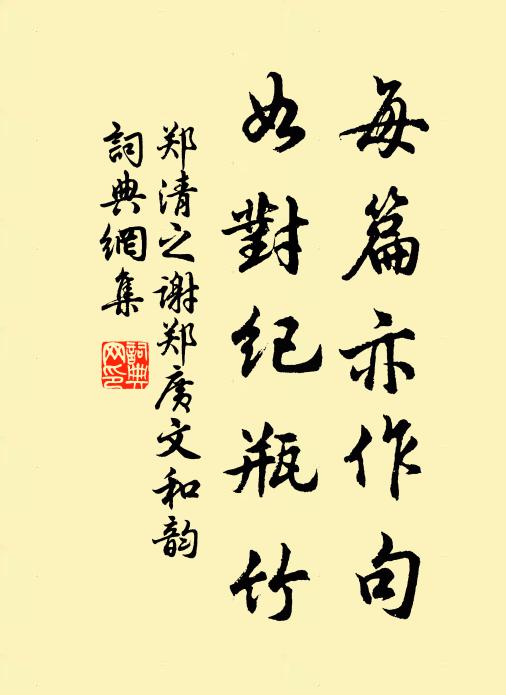 每篇亦作句
如對紀瓶竹
郑清之谢郑广文和韵
詞典網集
詞典网印